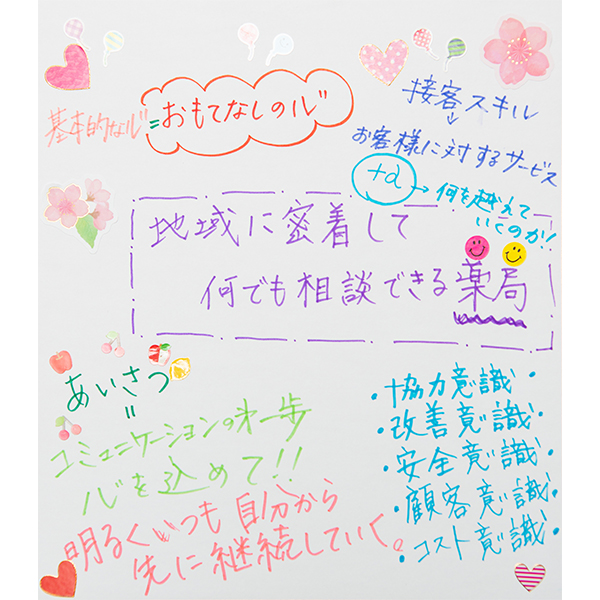 基本的な心=おもてなしの心
接客スキル
↓
お客様に対するサービス
+α→何を越えて
いくのか!
地域に密着して
何でも相談できる薬局
あいさつ
=
コミュニケーションの第一歩
心を込めて!!
明るくいつも自分から
先に継続していく。
・協力意識
・改善意識
・安全意識
・顧客意識
・コスト意識